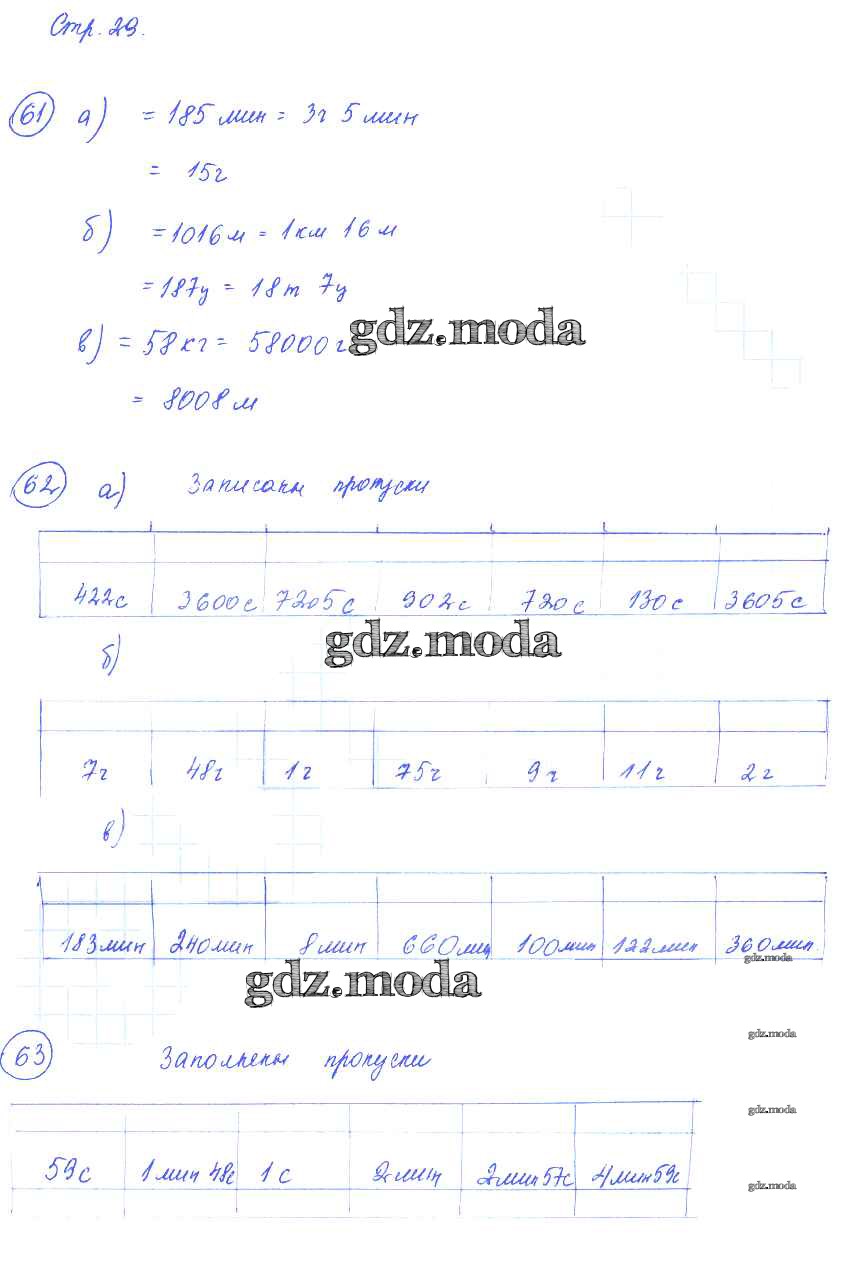 Стр. 29.
61 а) = 185 мин = 3г 5 мин
= 15г
б) = 1016 м = 1 км 16 м
= 187ц = 18т 7ц
в) = 58 кг = 58000 г
gdz.moda
= 8008 м
62 а) Записаны пропуски
422с 3600с 7205с 902с 720с 130с 3605с
gdz.moda
б)
7г 48г 1г 75г 9г 11г 2г
в)
183мин 240мин 8мин 660мин 100мин 122мин 360мин
gdz.moda
gdz.moda
gdz.moda
63 Заполнены пропуски
gdz.moda
59с 1мин 48с 1с 2мин 2мин 57с 4мин 59с
gdz.moda